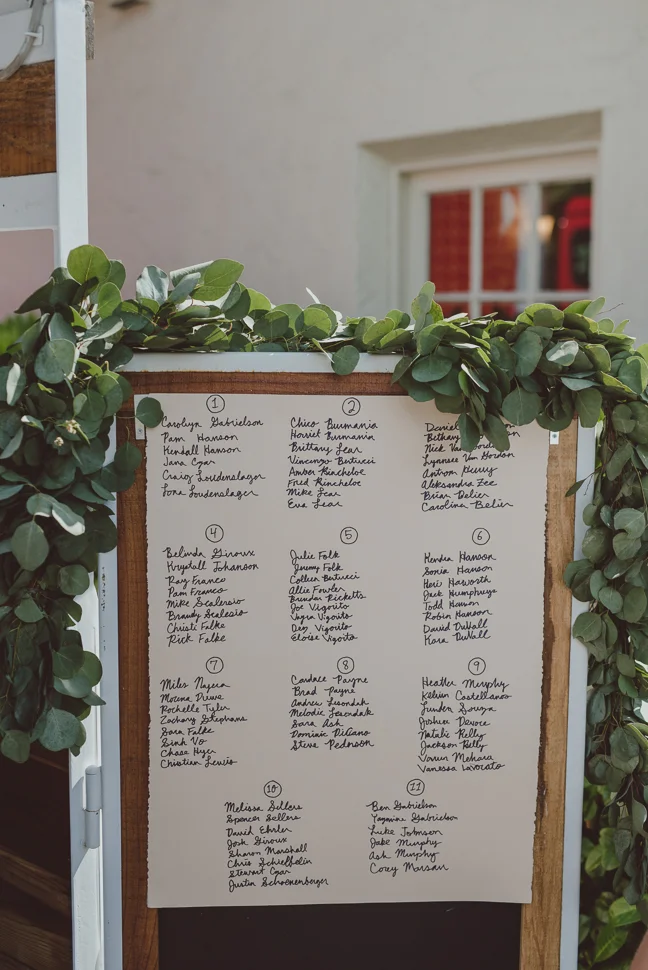 1
Carolyn Gabrielson
Pam Hanson
Kendall Hanson
Jana Czar
Craig Loudenslager
Lona Loudenslager
2
Chico Burmania
Harriet Burmania
Brittany Lear
Vincenzo Bertucci
Amber Rincheloe
Fred Rincheloe
Mike Lear
Eva Lear
Daniel
Bethany
Nick
Lynnsee Van Gordon
Antrom Henry
Aleksandra Zee
Brian Belier
Carolina Belier
4
Belinda Giroux
Krystall Johanson
Ray Franco
Pam Franco
Mike Scalersio
Brandy Scalesio
Christi Falke
Rick Falke
5
Julie Folk
Jeremy Folk
Colleen Bertucci
Allie Fowler
Brendan Ricketts
Joe Vigorito
Vigorito
Deg Vigorito
Eloise Vigorito
6
Kendra Hanson
Sonia Hanson
Heri Haworth
Jack Humphreys
Todd Hanson
Robin Hanson
David DuVall
Kara DuVall
7
Miles Najera
Morena Drewe
Rochelle Tyler
Zachary Stephans
Sara Falke
Sinh Vo
Chase Hyer
Christian Lewis
8
Candace Payne
Brad Payne
Andrew Lesondak
Melodie Lesondak
Sara Ash
Dominic DiCiano
Steve Pednson
9
Heather Murphy
Kelvin Castellanos
Linden Souza
Joshua Devore
Natalie Kelly
Jackson Kelly
Varun Mehara
Vanessa Lavorato
10
Melissa Sellers
Spencer Sellers
David Ehrler
Josh Giroux
Sharon Marshall
Chris Schielbelin
Stewart Czar
Justin Schoenenberger
11
Ben Gabrielson
Yazmine Gabrielson
Luke Johnson
Jake Murphy
Ash Murphy
Corey Morsan